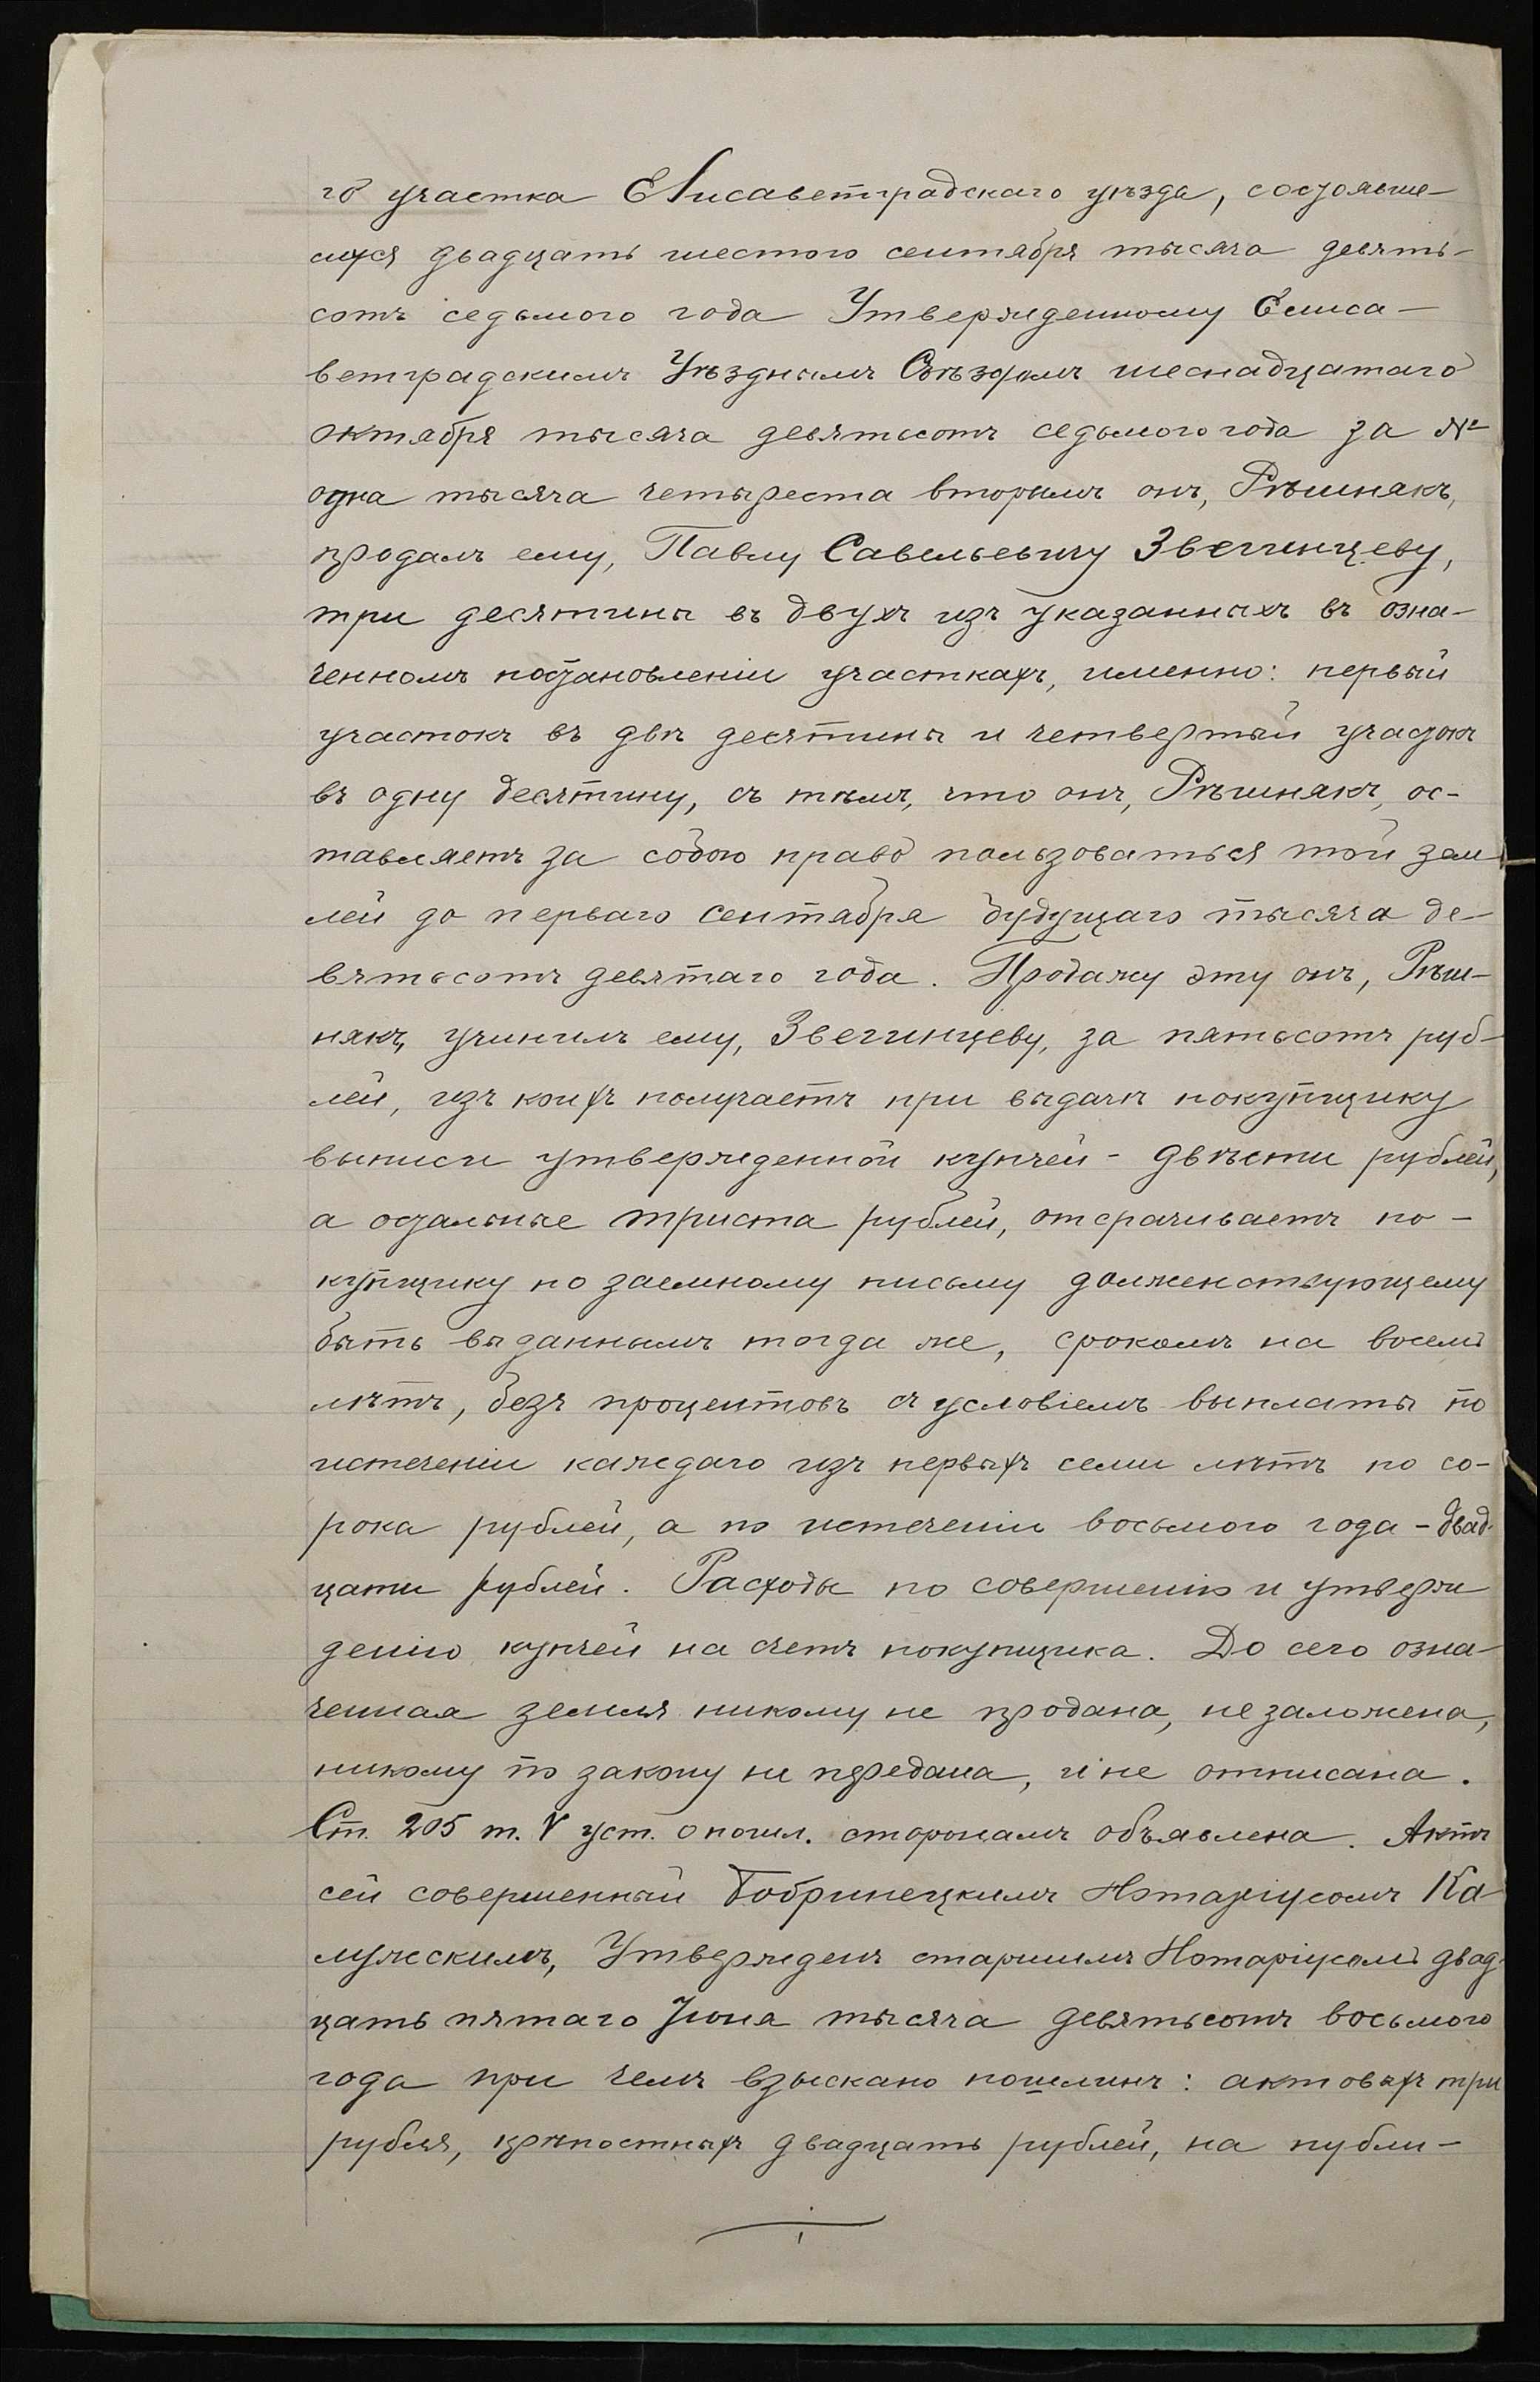 го участка Елисаветградскаго уѣзда, состоявше-
муся двадцать шестого сентября тысяча девять-
сотъ седьмого года Утвержденному Елиса-
ветградскимъ Уѣзднымъ Съѣздомъ шеснадцатаго
октября тысяча девятьсотъ седьмого года за №
одна тысяча четыреста вторымъ онъ, Рѣшнякъ,
продалъ ему, Павлу Савельевичу Звегинцеву,
три десятины въ двухъ изъ указанныхъ въ озна-
ченномъ постановленіи участкахъ, именно: первый
участокъ въ двѣ десятины и четвертый участокъ
въ одну десятину, съ тѣмъ, что онъ, Рѣшнякъ, ос-
тавляетъ за собою право пользоваться той зем
лей до перваго сентября будущаго тысяча де-
вятьсотъ девятаго года. Продажу эту онъ, Рѣш-
някъ, учинилъ ему, Звегинцеву, за пятьсотъ руб-
лей, изъ коихъ получаетъ при выдачѣ покупщику
выписи утвержденной купчей - двѣсти рублей,
а остальные триста рублей, отсрачиваетъ по-
купщику по заемному письму долженствующему
быть выданнымъ тогда же, срокомъ на восемь
лѣтъ, безъ процентовъ съ условіемъ выплаты по
истеченіи каждаго изъ первыхъ семи лѣтъ по со-
рока рублей, а по истеченіи восьмого года - двад-
цати рублей. Расходы по совершенію и утверж
денію купчей на счетъ покупщика. До сего озна-
ченная земля никому не продана, не заложена,
никому по закону не передана, и не отписана.
Ст. 205 т. V уст. о пошл. сторонамъ объявлена. Актъ
сей совершенный Бобринецкимъ Нотаріусомъ Ка-
лужскимъ, Утвержденъ старшимъ Нотаріусомъ двад-
цать пятаго Іюня тысяча девятьсотъ восьмого
года при чемъ взыскано пошлинъ: актовыхъ три
рубля, крѣпостныхъ двадцать рублей, на публи-